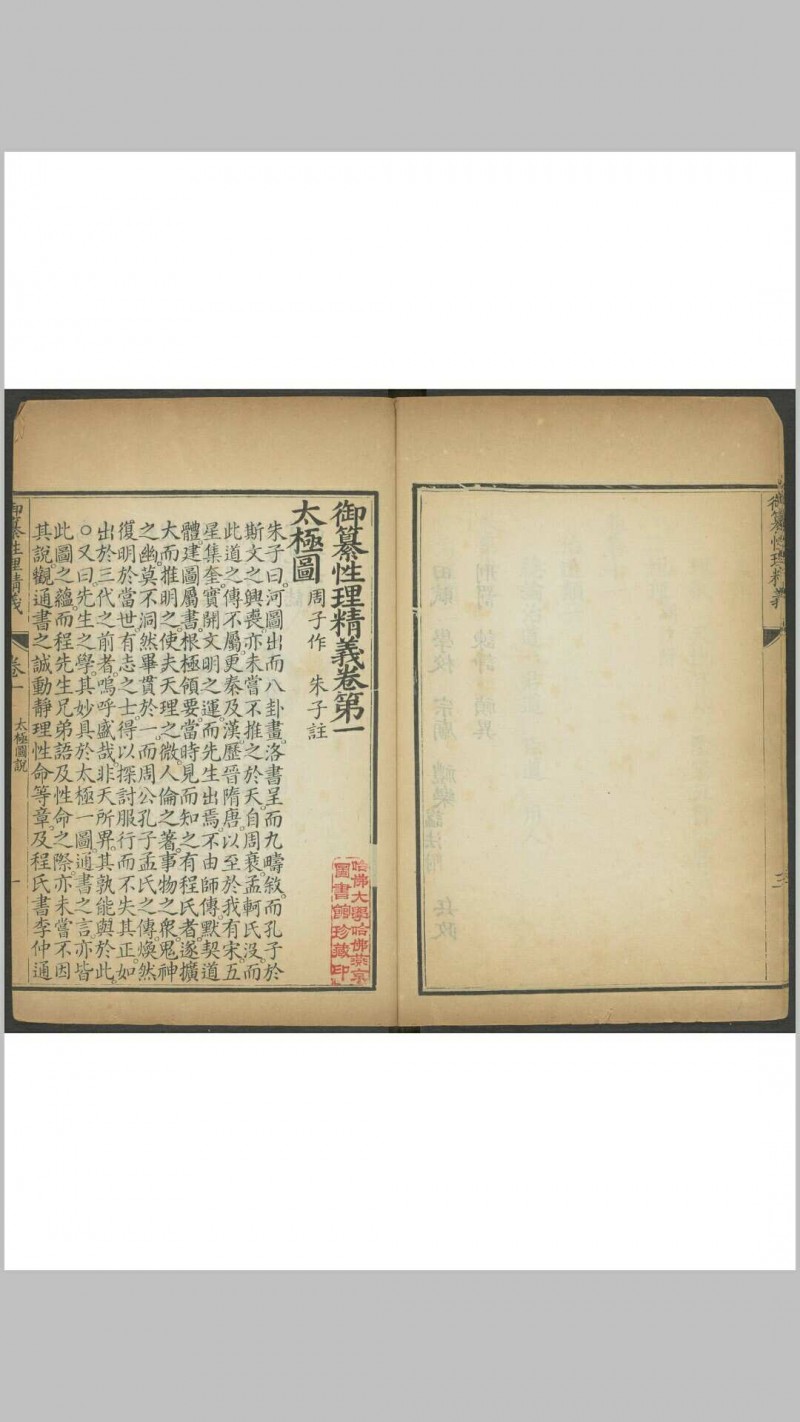 御纂性理精義
三
御纂性理精義卷第一
太極圖 周子作 朱子註
朱子曰。河圖出而八卦畫。洛書呈而九疇敘。而孔子於
斯文之興喪。亦未嘗不推之於天。自周衰。孟軻氏沒。而
此道之傳不屬。更秦及漢。歷晉隋唐。以至於我有宋。五
星集奎。實開文明之運。而先生出焉。不由師傳。默契道
體。建圖屬書。根極領要。當時見而知之。有程氏者。遂擴
大而推明之。使夫天理之微。人倫之著。事物之衆。鬼神
之幽。莫不洞然畢貫於一。而周公孔子孟氏之傳。煥然
復明於當世。有志之士。得以探討服行而不失其正。如
出於三代之前者。嗚呼盛哉。非天所畀。其孰能與於此。
○又曰。先生之學。其妙具於太極一圖。通書之言。亦皆
此圖之蘊。而程先生兄弟語及性命之際。亦未嘗不因
其說。觀通書之誠動靜理性命等章。及程氏書李仲通
哈佛大學哈佛燕京
圖書館珍藏印
御纂性理精義
卷一
太極圖說
一